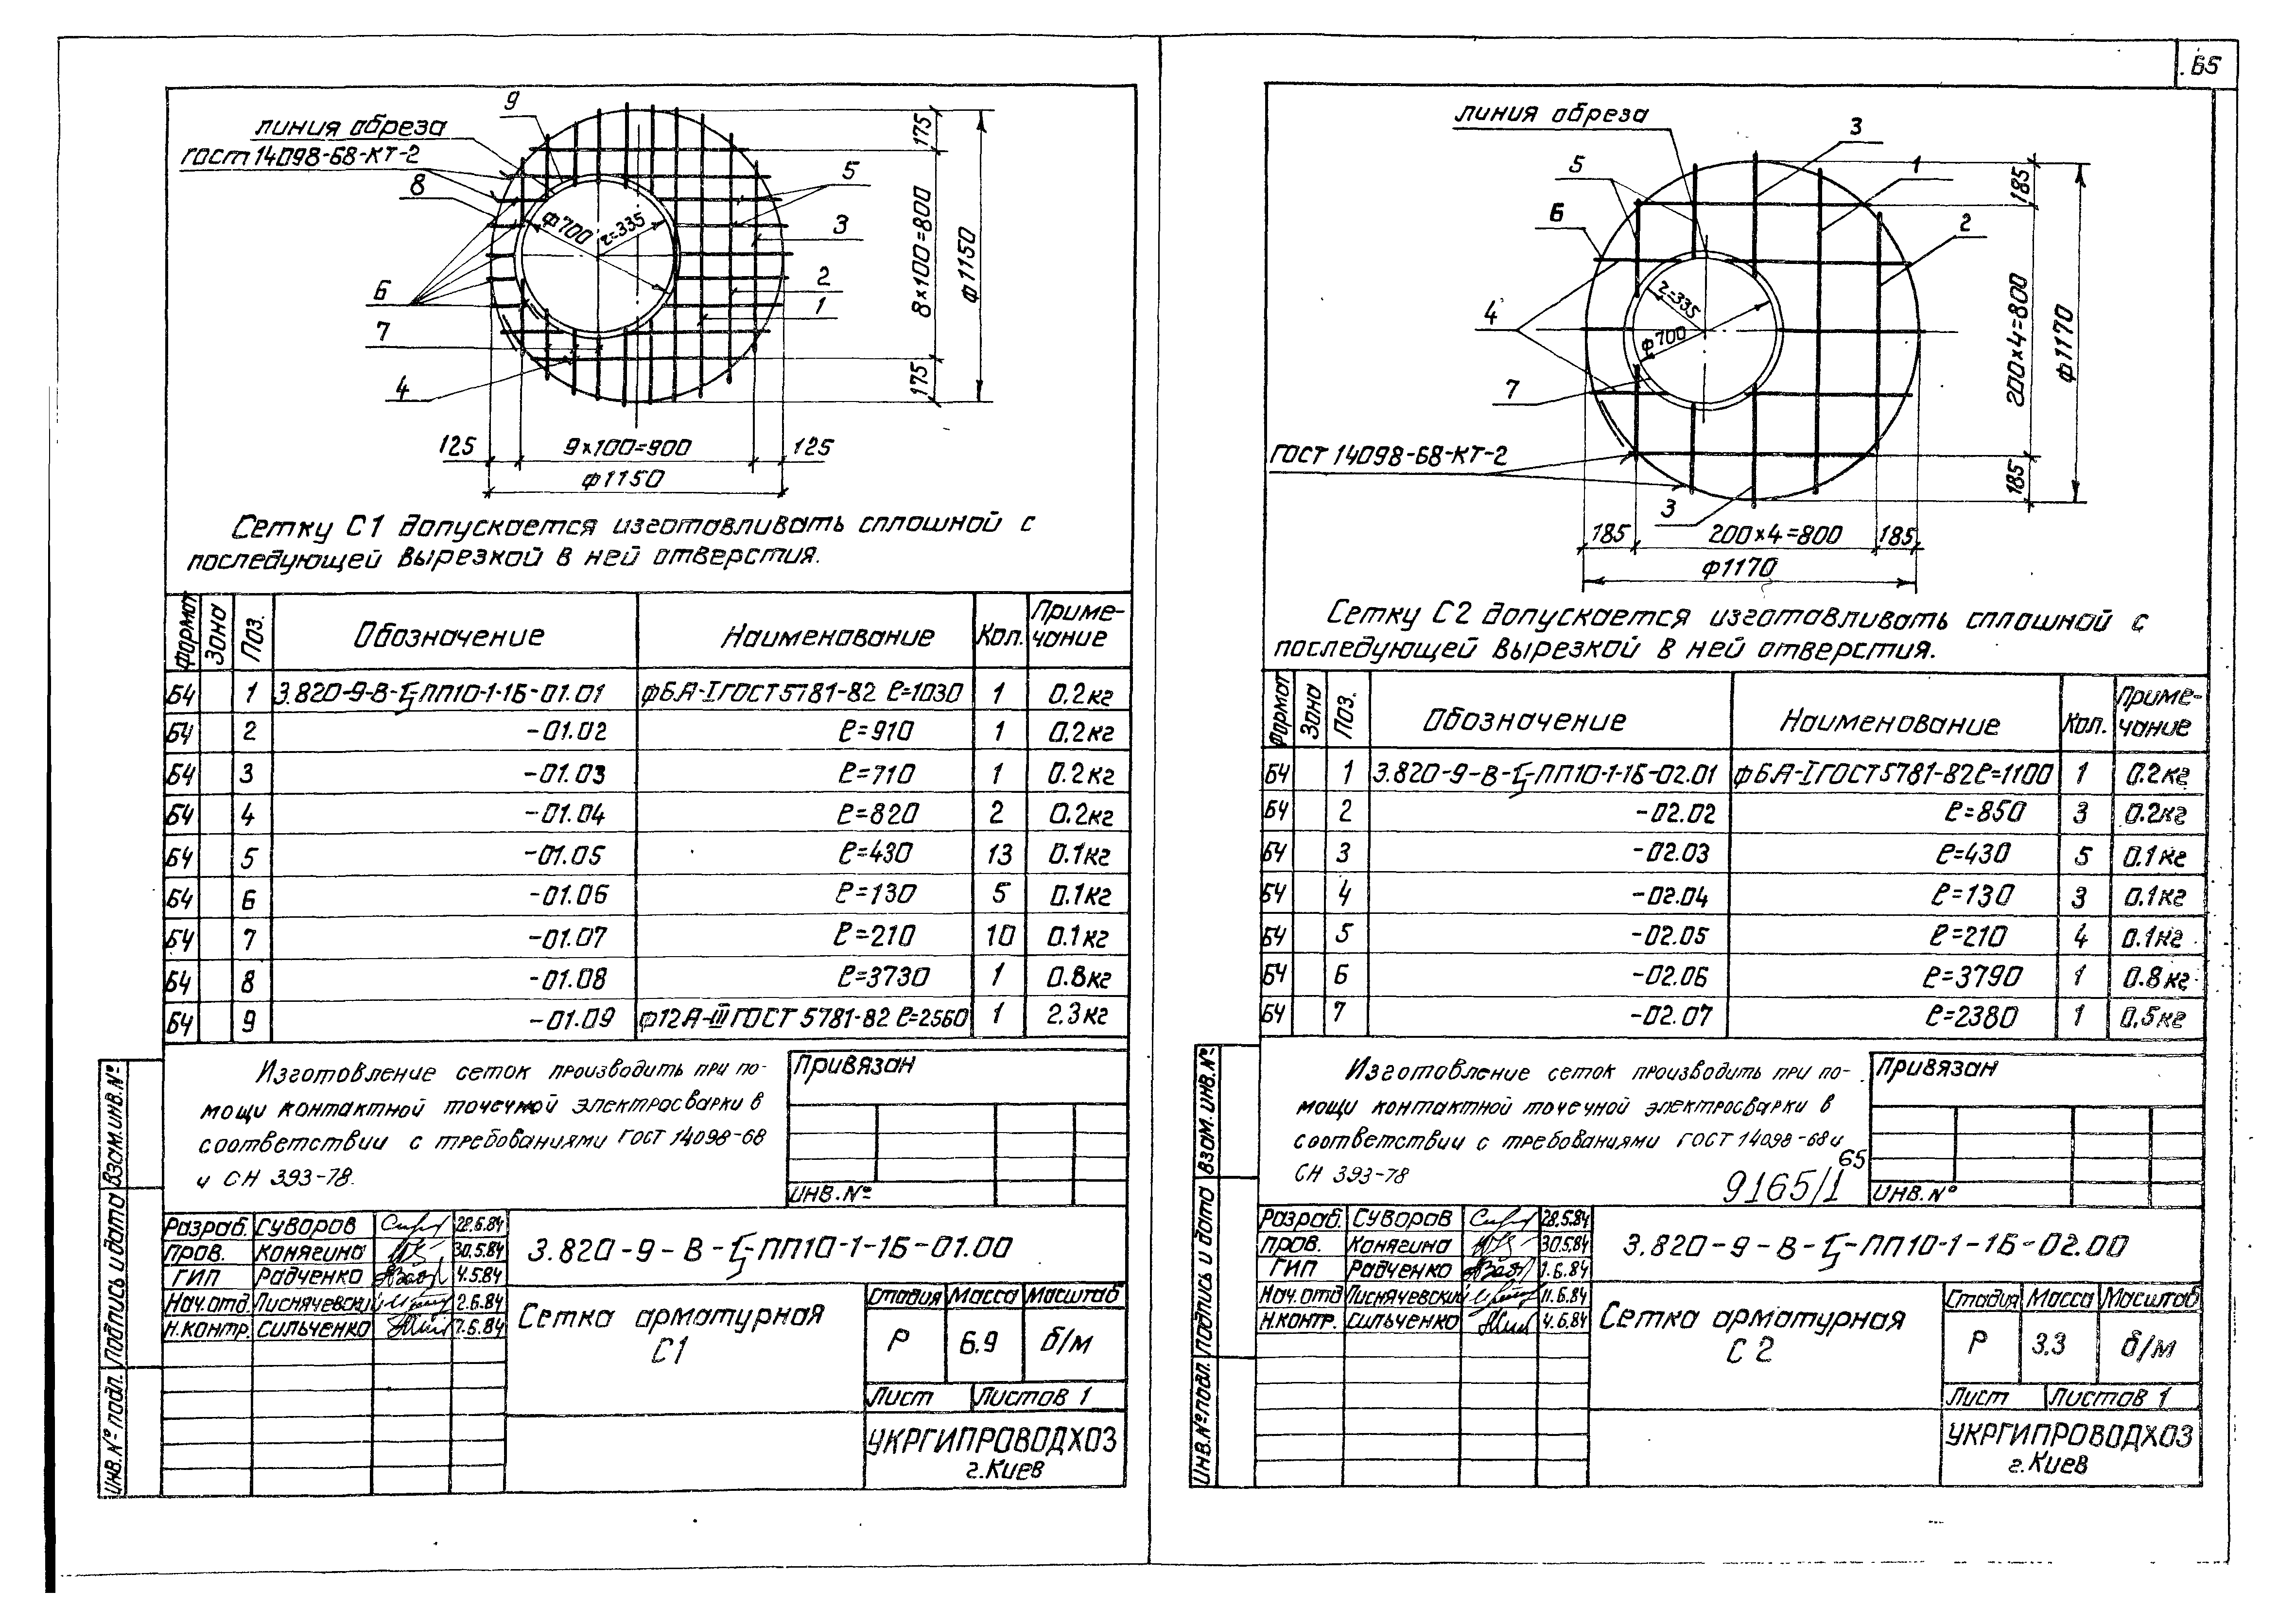 65
9
линия обреза
ГОСТ 14098-68-КТ-2
8
5
3
6
2
1
7
4
ф700
r=335
175
8×100=800
ф1150
175
125
9×100=900
125
ф1150
Сетку С1 допускается изготавливать сплошной с
последующей вырезкой в ней отверстия.
Формат Зона Поз. Обозначение Наименование Кол. Приме-
чание
БЧ 1 3.820-9-В-Ц-ПП10-1-1Б-01.01 ф6А-I ГОСТ 5781-82 ℓ=1030 1 0.2кг
БЧ 2 -01.02 ℓ=910 1 0.2кг
БЧ 3 -01.03 ℓ=710 1 0.2кг
БЧ 4 -01.04 ℓ=820 2 0.2кг
БЧ 5 -01.05 ℓ=430 13 0.1кг
БЧ 6 -01.06 ℓ=130 5 0.1кг
БЧ 7 -01.07 ℓ=210 10 0.1кг
БЧ 8 -01.08 ℓ=3730 1 0.8кг
БЧ 9 -01.09 ф12А-III ГОСТ 5781-82 ℓ=2560 1 2.3кг
Изготовление сеток производить при по-
мощи контактной точечной электросварки в
соответствии с требованиями ГОСТ 14098-68
и СН 393-78.
Привязан
ИНВ.№
Разраб. Суворов 28.6.84
Пров. Конягина 30.5.84
ГИП Радченко 4.5.84
Нач.отд. Лиснячевский 2.6.84
Н.контр. Сильченко 7.6.84
3.820-9-В-Ц-ПП10-1-1Б-01.00
Сетка арматурная
С1
Стадия Масса Масштаб
Р 6.9 б/м
Лист Листов 1
УКРГИПРОВОДХОЗ
г.Киев
Инв.№ подл. Подпись и дата Взам.инв.№
линия обреза
3
5
1
6
2
4
7
r=335
ф700
ГОСТ 14098-68-КТ-2
3
185
200×4=800
ф1170
185
185
200×4=800
185
ф1170
Сетку С2 допускается изготавливать сплошной с
последующей вырезкой в ней отверстия.
Формат Зона Поз. Обозначение Наименование Кол. Приме-
чание
БЧ 1 3.820-9-В-Ц-ПП10-1-1Б-02.01 ф6А-I ГОСТ 5781-82 ℓ=1100 1 0.2кг
БЧ 2 -02.02 ℓ=850 3 0.2кг
БЧ 3 -02.03 ℓ=430 5 0.1кг
БЧ 4 -02.04 ℓ=130 3 0.1кг
БЧ 5 -02.05 ℓ=210 4 0.1кг
БЧ 6 -02.06 ℓ=3790 1 0.8кг
БЧ 7 -02.07 ℓ=2380 1 0.5кг
Изготовление сеток производить при по-
мощи контактной точечной электросварки в
соответствии с требованиями ГОСТ 14098-68 и
СН 393-78
9165/1 65
Привязан
ИНВ.№
Разраб. Суворов 28.5.84
Пров. Конягина 30.5.84
ГИП Радченко 1.6.84
Нач.отд Лиснячевский 11.6.84
Н.контр. Сильченко 4.6.84
3.820-9-В-Ц-ПП10-1-1Б-02.00
Сетка арматурная
С2
Стадия Масса Масштаб
Р 3.3 б/м
Лист Листов 1
УКРГИПРОВОДХОЗ
г.Киев
Инв.№подл. Подпись и дата Взам.инв.№